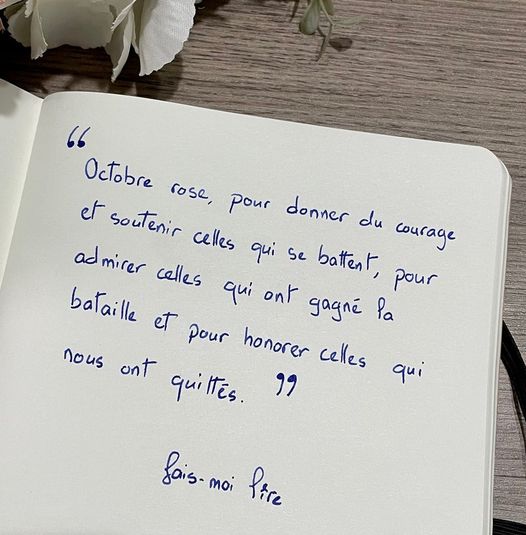 “
Octobre rose, pour donner du courage
et soutenir celles qui se battent, pour
admirer celles qui ont gagné la
bataille et pour honorer celles qui
nous ont quittés. ”
fais-moi lire